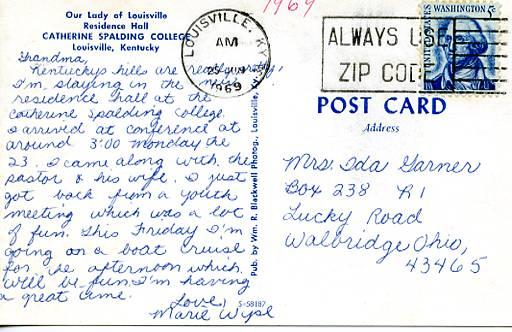 1969
Our Lady of Louisville
Residence Hall
CATHERINE SPALDING COLLEGE
Louisville, Kentucky
Grandma,
Kentuckys hills are really pretty.
I'm staying in the
residence hall at the
Catherine Spalding College.
I arrived at conference at
around 3:00 monday the
23. I came along with the
pastor & his wife. I just
got back from a youth
meeting which was a lot
of fun. This Friday I'm
going on a boat cruise
for the afternoon which
will be fun. I'm having
a great time.
Love,
Marie
Pub. by Wm. R. Blackwell Photog., Louisville, Ky.
S-58187
LOUISVILLE, KY.
AM
25 JUN
1969
ALWAYS USE
ZIP CODE
UNITED STATES
WASHINGTON 5c
POST CARD
Address
Mrs. Ida Garner
Box 238 R1
Lucky Road
Walbridge Ohio,
43465